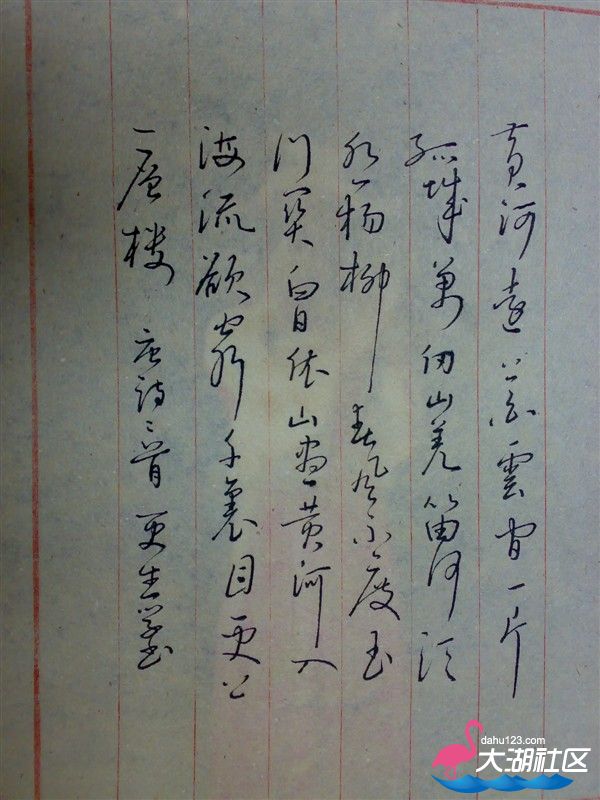 黄河遠上白雲间一片
孤城萬仞山羌笛何须
怨杨柳春风不度玉
门关白日依山尽黄河入
海流欲窮千裏目更上
一层楼 唐诗二首 更生学书
dahu123.com
大湖社区